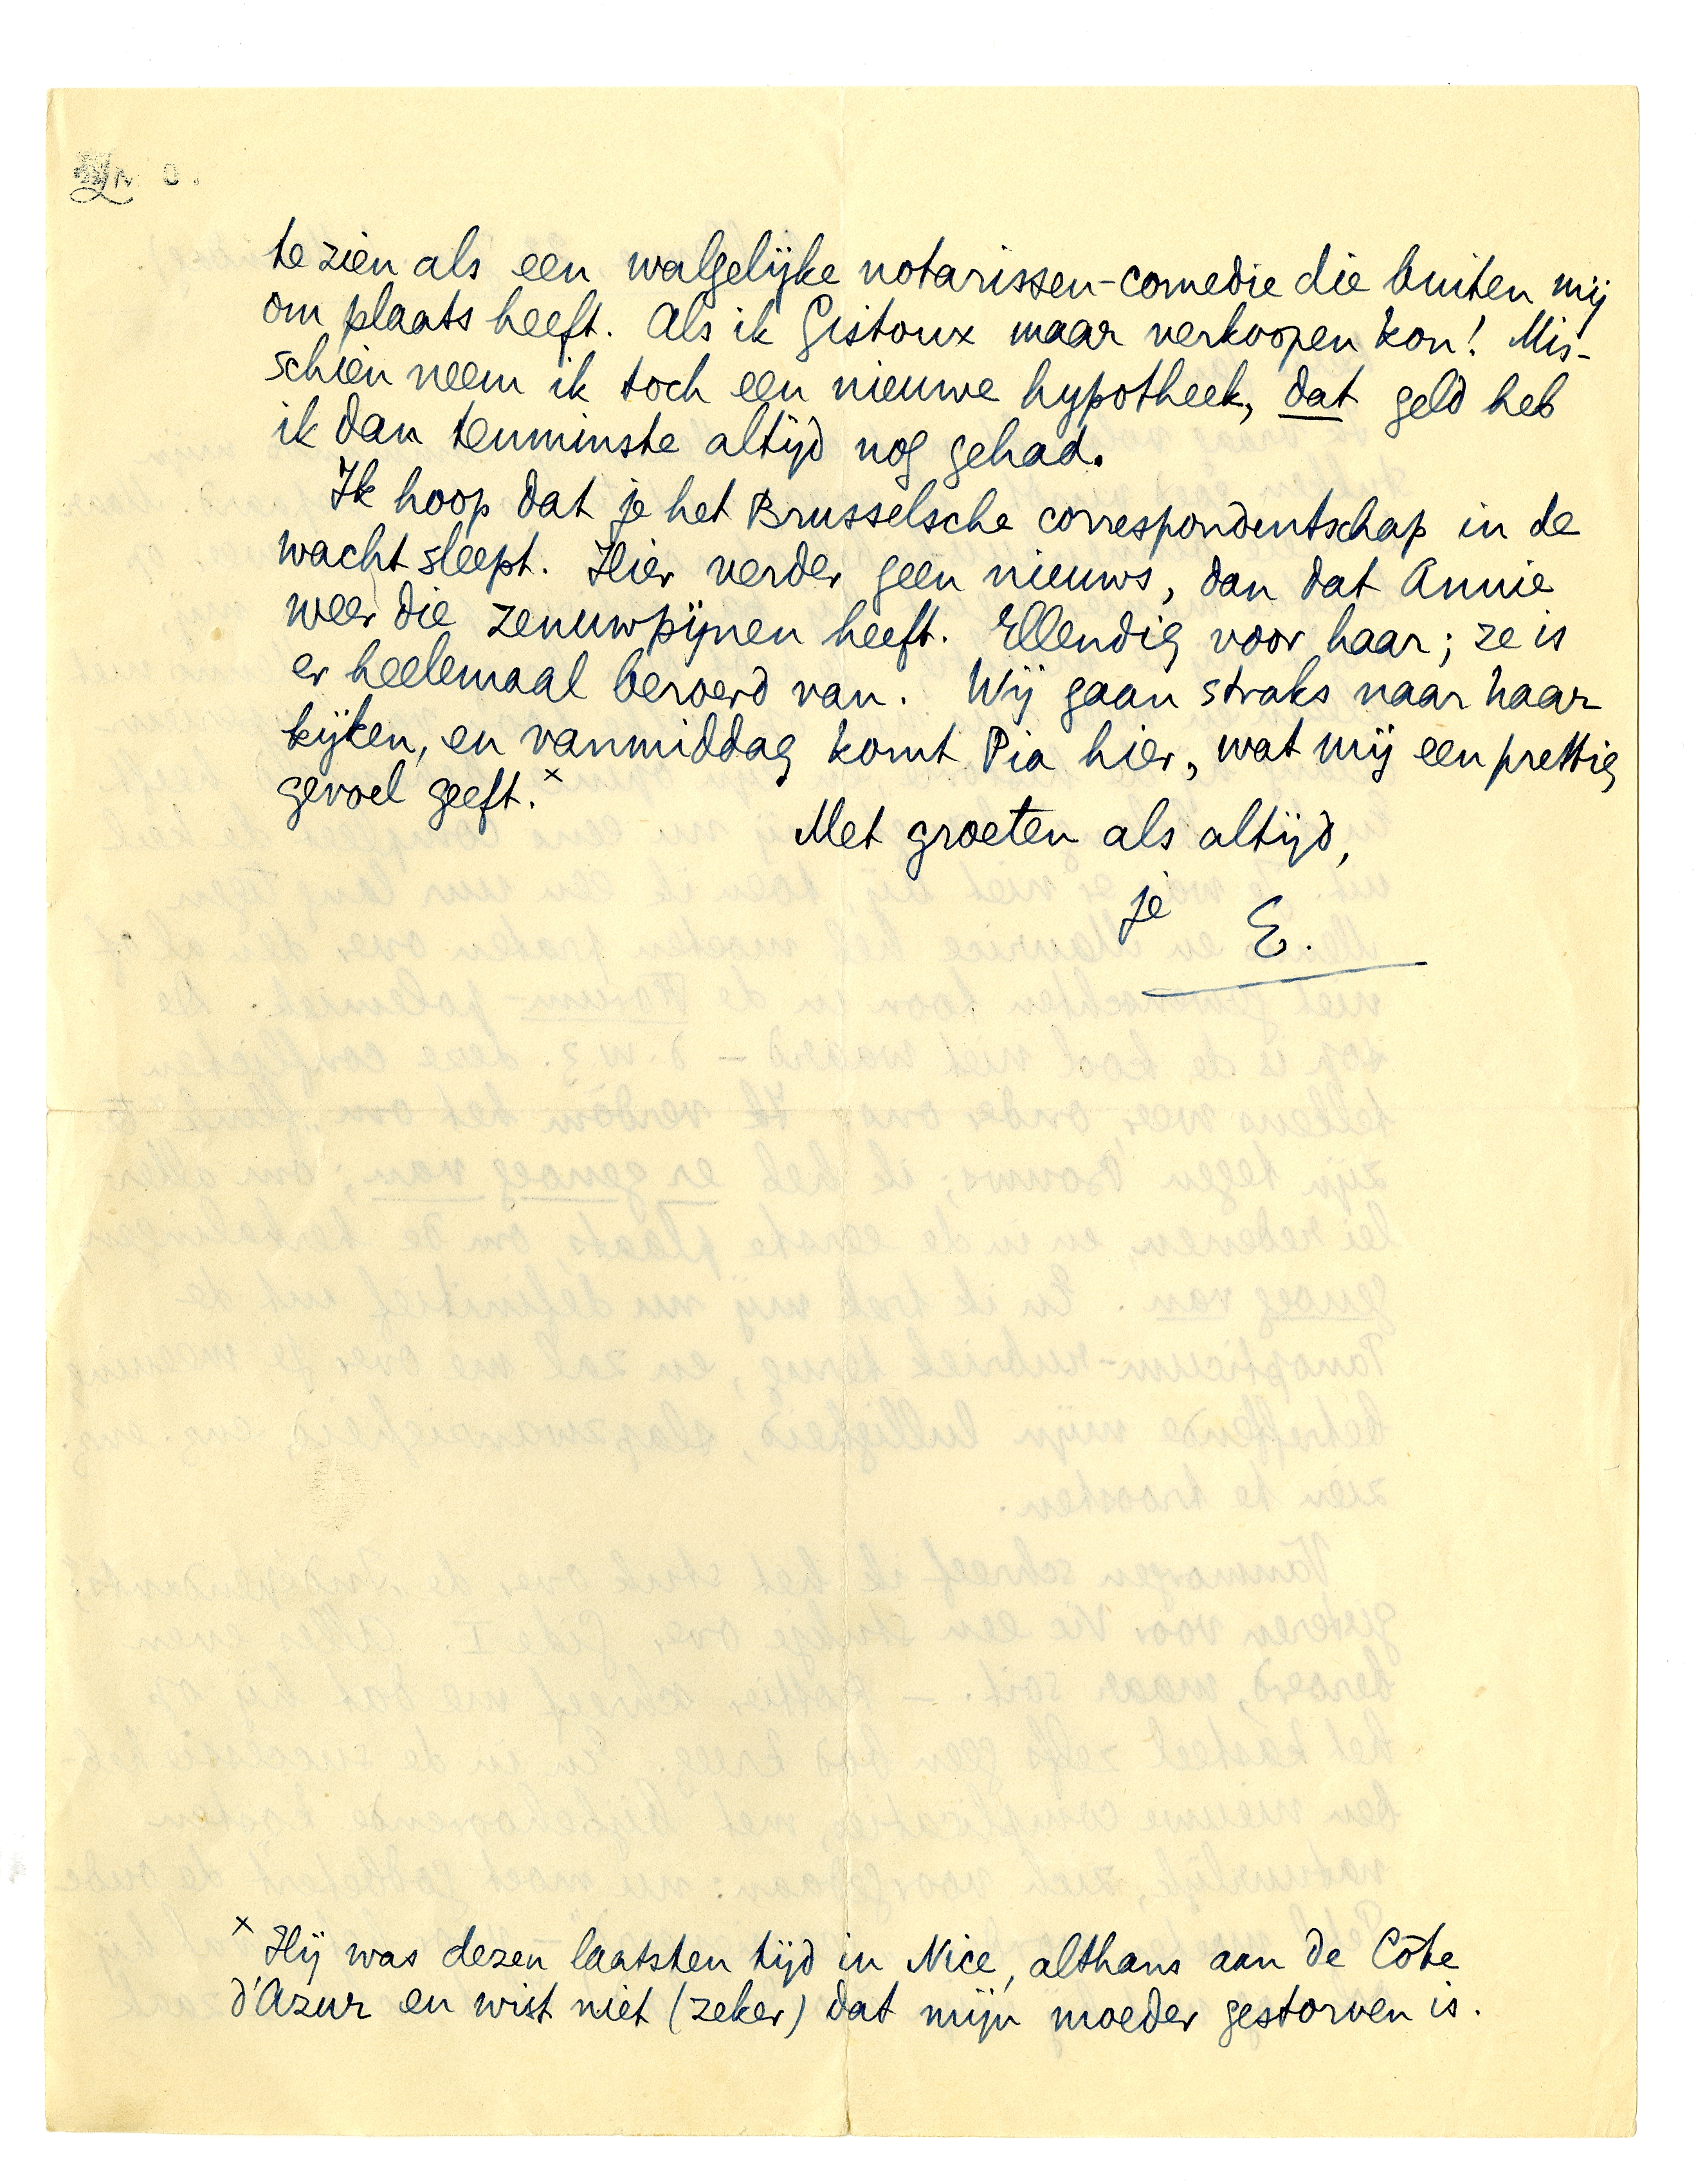 te zien als een walgelijke notarissen-comedie die buiten mij
om plaats heeft. Als ik Gistoux maar verkoopen kon! Mis-
schien neem ik toch een nieuwe hypotheek, dat geld heb
ik dan tenminste altijd nog gehad.
Ik hoop dat je het Brusselsche correspondentschap in de
wacht sleept. Hier verder geen nieuws, dan dat Annie
weer die zenuwpijnen heeft. Ellendig voor haar; ze is
er heelemaal beroerd van. Wij gaan straks naar haar
kijken, en vanmiddag komt Pia hier, wat mij een prettig
gevoel geeft.×
Met groeten als altijd,
je E.
× Hij was dezen laatsten tijd in Nice, althans aan de Côte
d'Azur en wist niet (zeker) dat mijn moeder gestorven is.